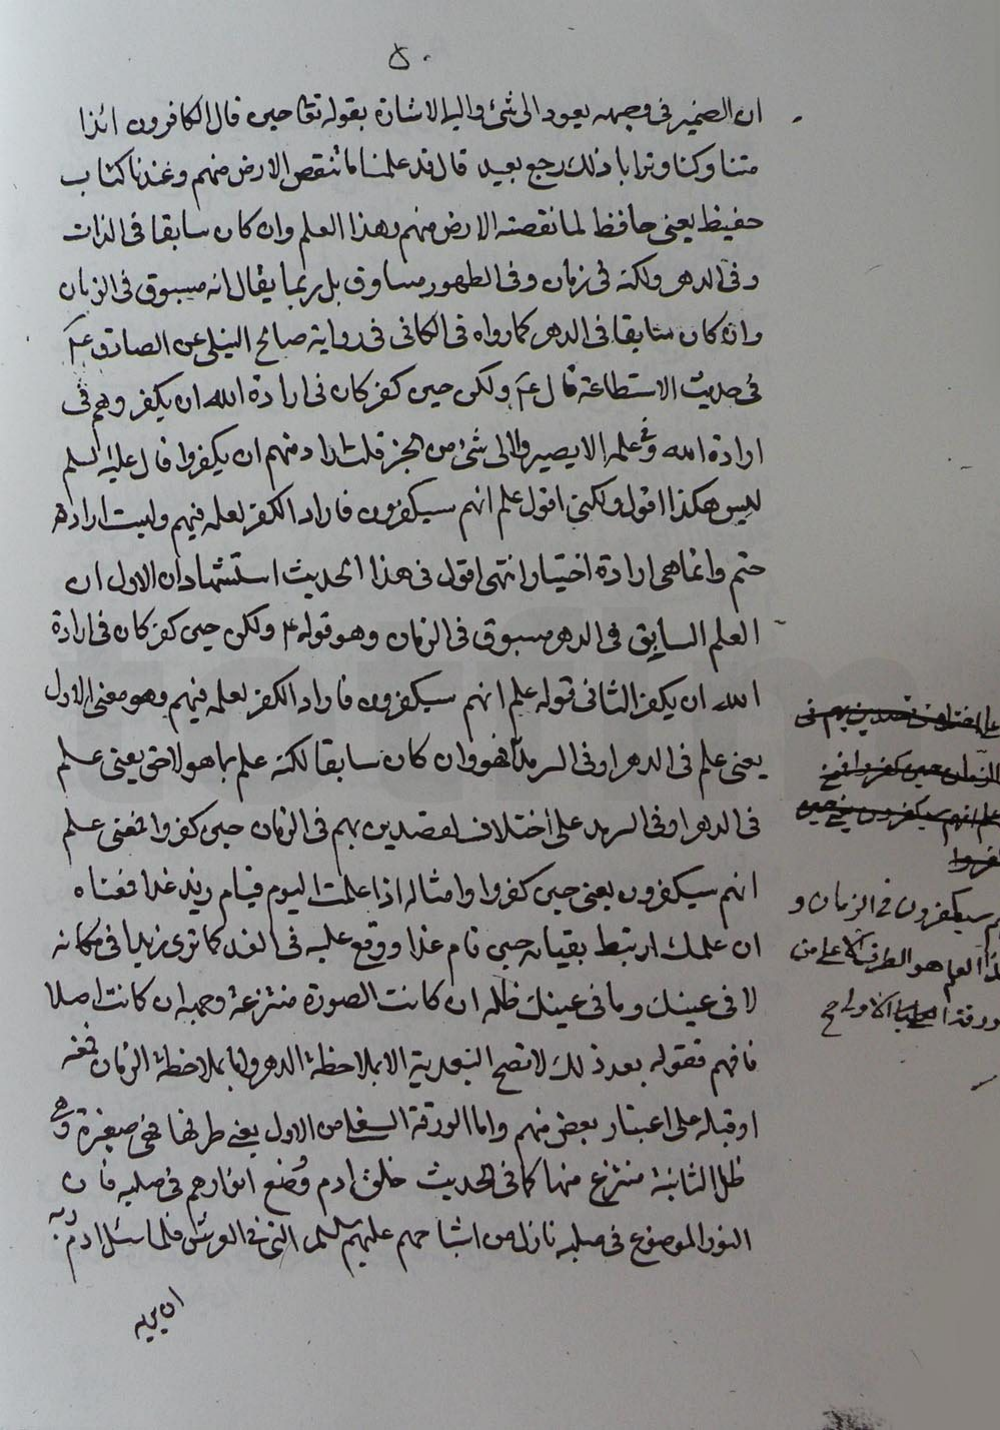 ٥٠
ان الضمير فى وجهه يعود الى شئ واليه الاشارة بقوله تعا حين قال الكافرون ائذا
متنا وكنا ترابا ذلك رجع بعيد قال قد علمنا ما تنقص الارض منهم وعندنا كتاب
حفيظ يعنى حافظ لما تقصته الارض منهم وهذا العلم وان كان سابقا فى الذات
وفى الدهر ولكنه فى زمان وفى الظهور مساوق بل ربما يقال انه مسبوق فى الزمان
وان كان سابقا فى الدهر كما رواه فى الكافى فى رواية صالح النيلى عن الصادق ع
فى حديث الاستطاعة قال ع ولكن حين كفر كان فى ارادة الله ان يكفر وهم فى
ارادة الله وفى علمه الا يصيروا الى شئ من الخير قلت اراد منهم ان يكفروا قال عليه السلم
ليس هكذا اقول ولكنى اقول علم انهم سيكفرون فاراد الكفر لعلمه فيهم وليست ارادة
حتم وانما هى ارادة اختيار انتهى اقول فى هذا الحديث استشهادان الاول ان
العلم السابق فى الدهر مسبوق فى الزمان وهو قوله ع ولكن حين كفر كان فى ارادة
الله ان يكفر الثانى قوله علم انهم سيكفرون فاراد الكفر لعلمه فيهم وهو معنى الاول
يعنى علم فى الدهر او فى السرمد فهو وان كان سابقا لكنه علم بما هو لاحق يعنى علم
فى الدهر او فى السرمد على اختلاف القصدين بهم فى الزمان حين كفروا فمعنى علم
انهم سيكفرون يعنى حين كفروا وامثاله اذا علمت اليوم قيام زيد غدا فمعناه
ان علمك ارتبط بقيامه حين قام غدا ووقع عليه فى الغد كما ترى زيدا فى مكانه
لا فى عينك وما فى عينك ظله ان كانت الصورة منتزعة وجهه ان كانت اصلا
فافهم فقوله بعد ذلك لا تصح البعدية الا بملاحظة الدهر واما بملاحظة الزمان فمعه
او قبله على اعتبار بعض منهم واما الورقة السفلى من الاول يعنى طرفها فهى صغيرة وهى
ظل الثانية منتزع منها كما فى الحديث خلق ادم وضع انوارهم فى صلبه فان
النور الموضوع فى صلبه نازل من اشباحهم عليهم السلم التى فى العرش فلما سئل ادم ربه
ان يريه
سيكفرون فى الزمان و
العلم هو الطرف الاعلى من
ورقة الاولى صح